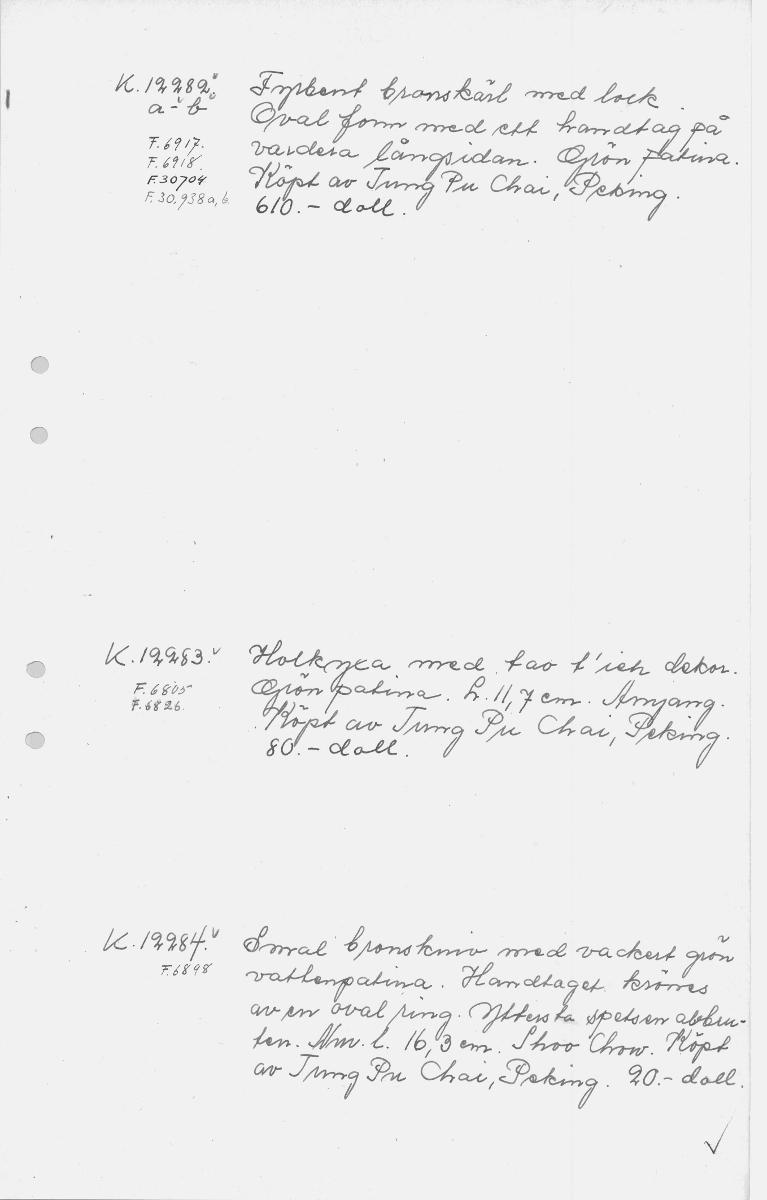 K.12282. Fyrbent bronskärl med lock.
a-b Oval form med ett handtag på
F.6917. vardera långsidan. Grön patina.
F.6918.
F.30704 Köpt av Tung Pu Chai, Peking.
F.30.938a,b. 610.- doll.
K.12283. Holkyxa med tao t'ieh dekor.
F.6805 Grön patina. L. 11,7 cm. Anyang.
F.6826. Köpt av Tung Pu Chai, Peking.
80.- doll.
K.12284. Smal bronskniv med vackert grön
F.6898 vattenpatina. Handtaget krönes
av en oval ring. Yttersta spetsen abbru-
ten. Nuv. l. 16,3 cm. Shoo Chow. Köpt
av Tung Pu Chai, Peking. 20.- doll.